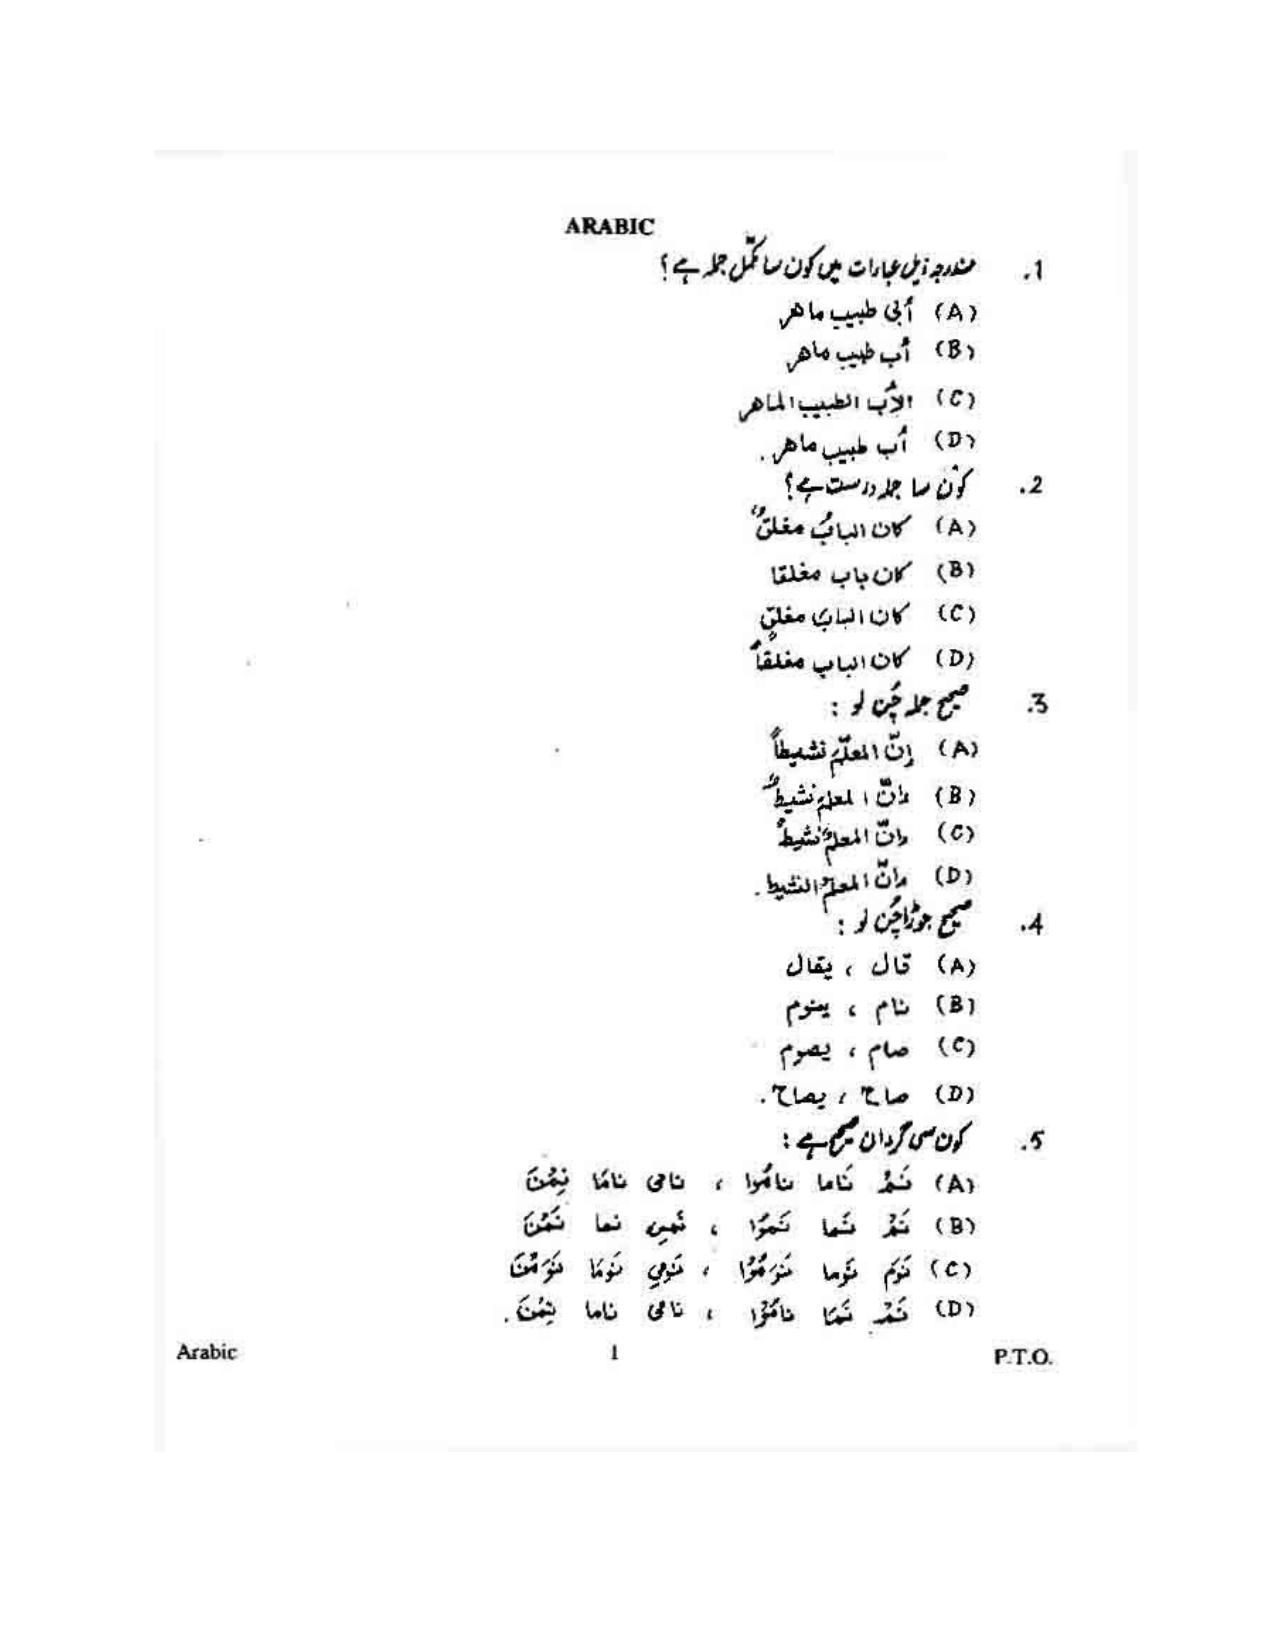 ARABIC
1. مندرجہ ذیل عبارات میں کون سا مکمّل جملہ ہے؟
(A) أبی طبیب ماهر
(B) أب طبیب ماهر
(C) الأب الطبیب الماهر
(D) أب طبیب ماهر .
2. کون سا جملہ درست ہے؟
(A) کان البابُ مغلقٌ
(B) کان باب مغلقا
(C) کان البابَ مغلق
(D) کان الباب مغلقاً
3. صحیح جملہ چُن لو :
(A) إنّ المعلّم نشیطاً
(B) إنّ المعلم نشیطٌ
(C) إنّ المعلمَ نشیطٌ
(D) إنّ المعلمُ النشیط .
4. صحیح جوڑا چُن لو :
(A) قال ، یقال
(B) نام ، ینوم
(C) صام ، یصوم
(D) صاح ، یصاح .
5. کون سی گردان صحیح ہے :
(A) نَمْ نَاما نامُوا ، نامی نامَا نِمْنَ
(B) نَمْ نَما نَمُوْا ، نَمِی نما نَمْنَ
(C) نَوم نَوما نَوَمُوْا ، نَومِی نَومَا نَوَمْنَ
(D) نَمْ نَمَا نامُوْا ، نامی ناما نِمْنَ .
Arabic 1 P.T.O.